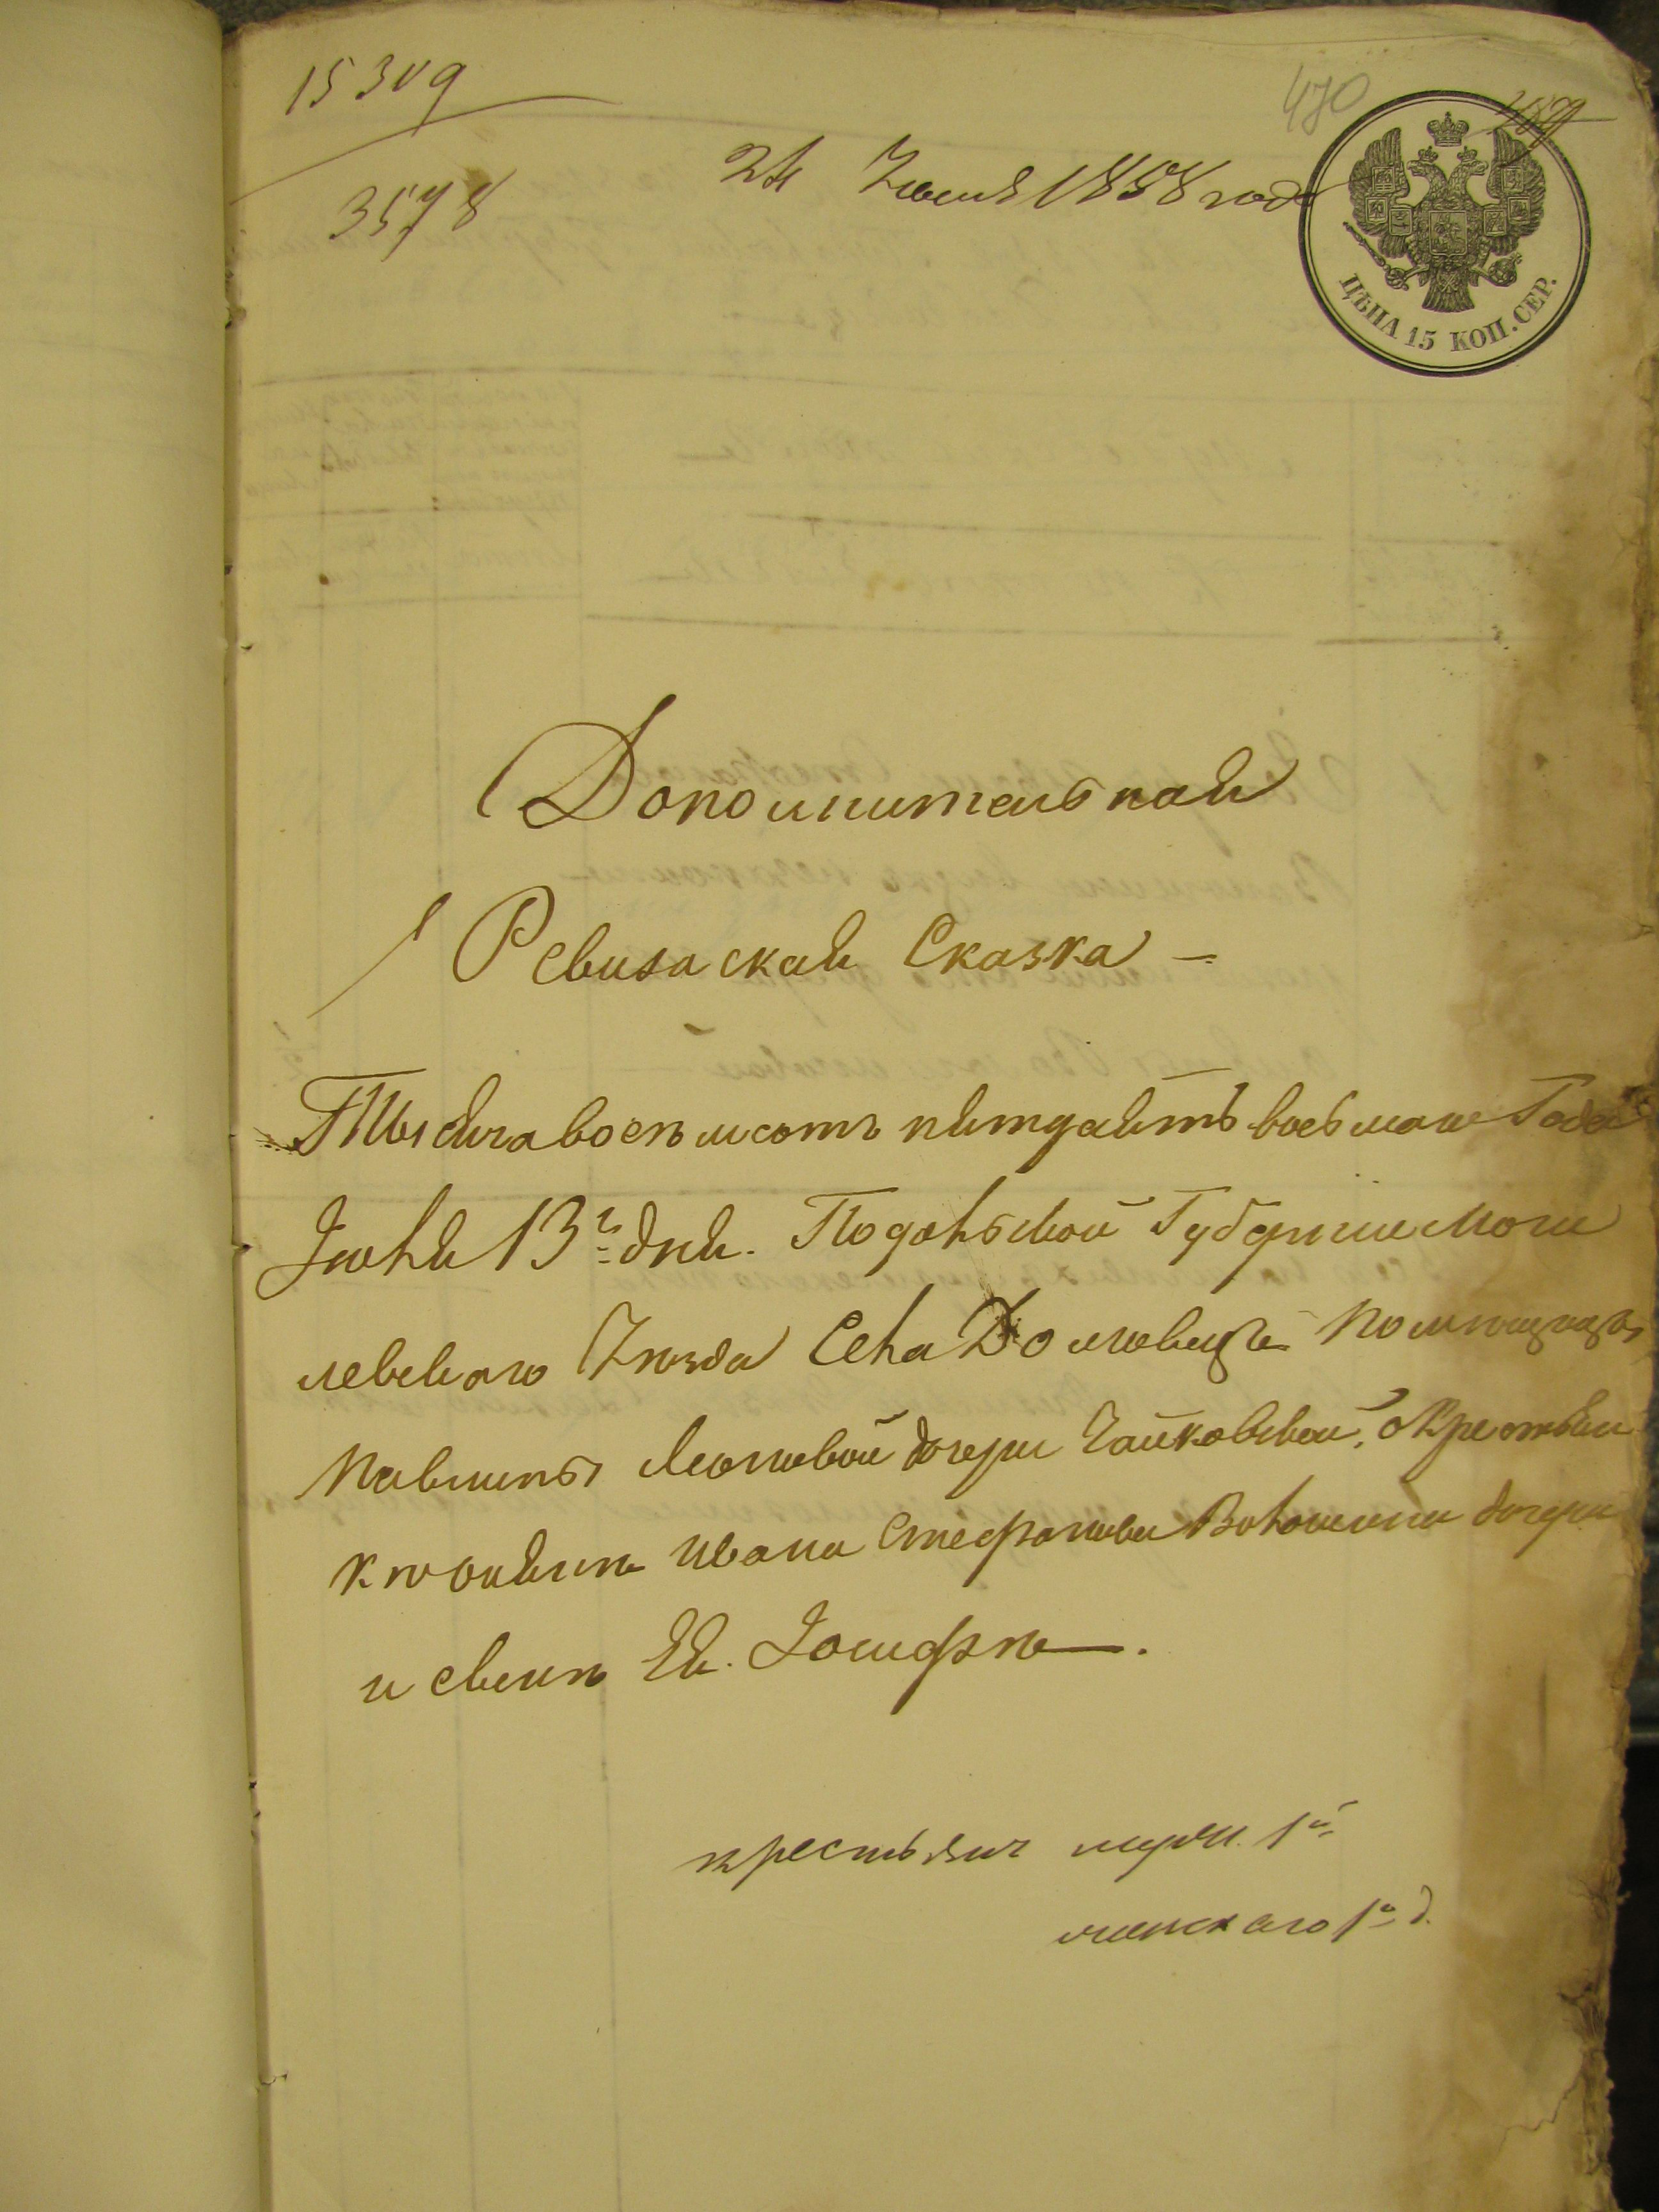 15309
3578
470
489
24 Июня 1858 года
ЦѢНА 15 КОП. СЕР.
Дополнительная
Ревизская Сказка
Тысяча восемьсотъ пятдесятъ восьмаго Года
Июня 13го дня. Подольской Губерніи Моги
левскаго Уѣзда Села Доловецъ Помѣщицы
Павлины Леоновой дочери Чайковской, о Крестьян
Ивана Стефанова Волошина дочери
и Ея. Іосифѣ.
крестьянъ муж. 1й
женскаго 1а д.